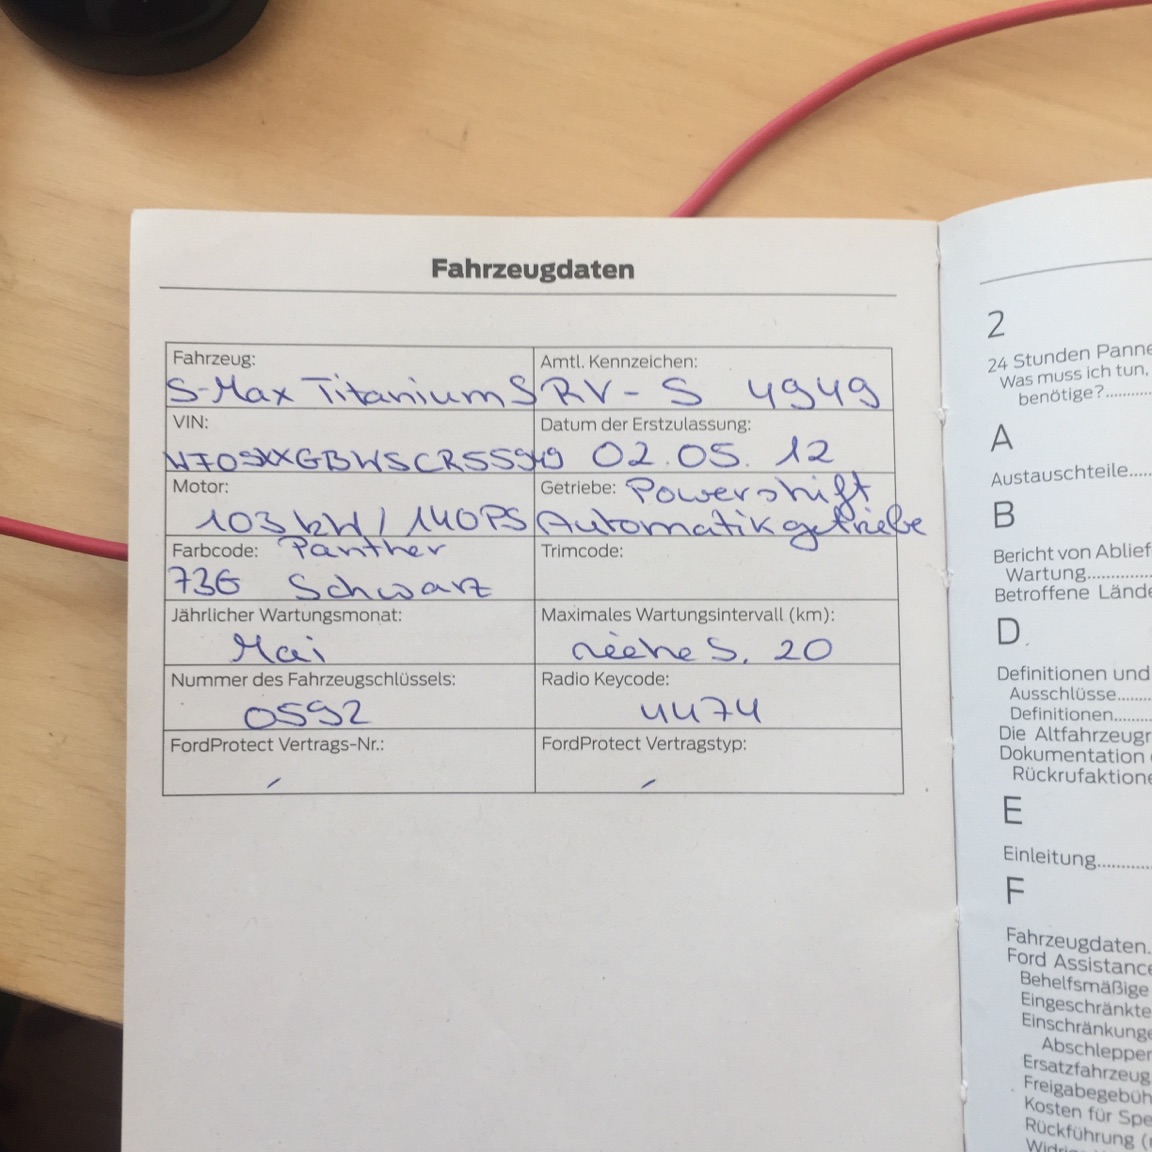 Fahrzeugdaten
Fahrzeug:
S-Max Titanium S
Amtl. Kennzeichen:
RV - S 4949
VIN:
Datum der Erstzulassung:
02.05.12
Motor:
103 kW / 140 PS
Getriebe: Powershift
Automatikgetriebe
Farbcode: Panther
73G Schwarz
Trimcode:
Jährlicher Wartungsmonat:
Mai
Maximales Wartungsintervall (km):
siehe S. 20
Nummer des Fahrzeugschlüssels:
0592
Radio Keycode:
4474
FordProtect Vertrags-Nr.:
FordProtect Vertragstyp:
2
24 Stunden Panne
Was muss ich tun,
benötige?..........
A
Austauschteile.....
B
Bericht von Ablief
Wartung..............
Betroffene Lände
D
Definitionen und
Ausschlüsse.......
Definitionen.......
Die Altfahrzeugr
Dokumentation
Rückrufaktione
E
Einleitung............
F
Fahrzeugdaten.
Ford Assistance
Behelfsmäßige
Eingeschränkte
Einschränkunge
Abschlepper
Ersatzfahrzeug
Freigabegebüh
Kosten für Spe
Rückführung (